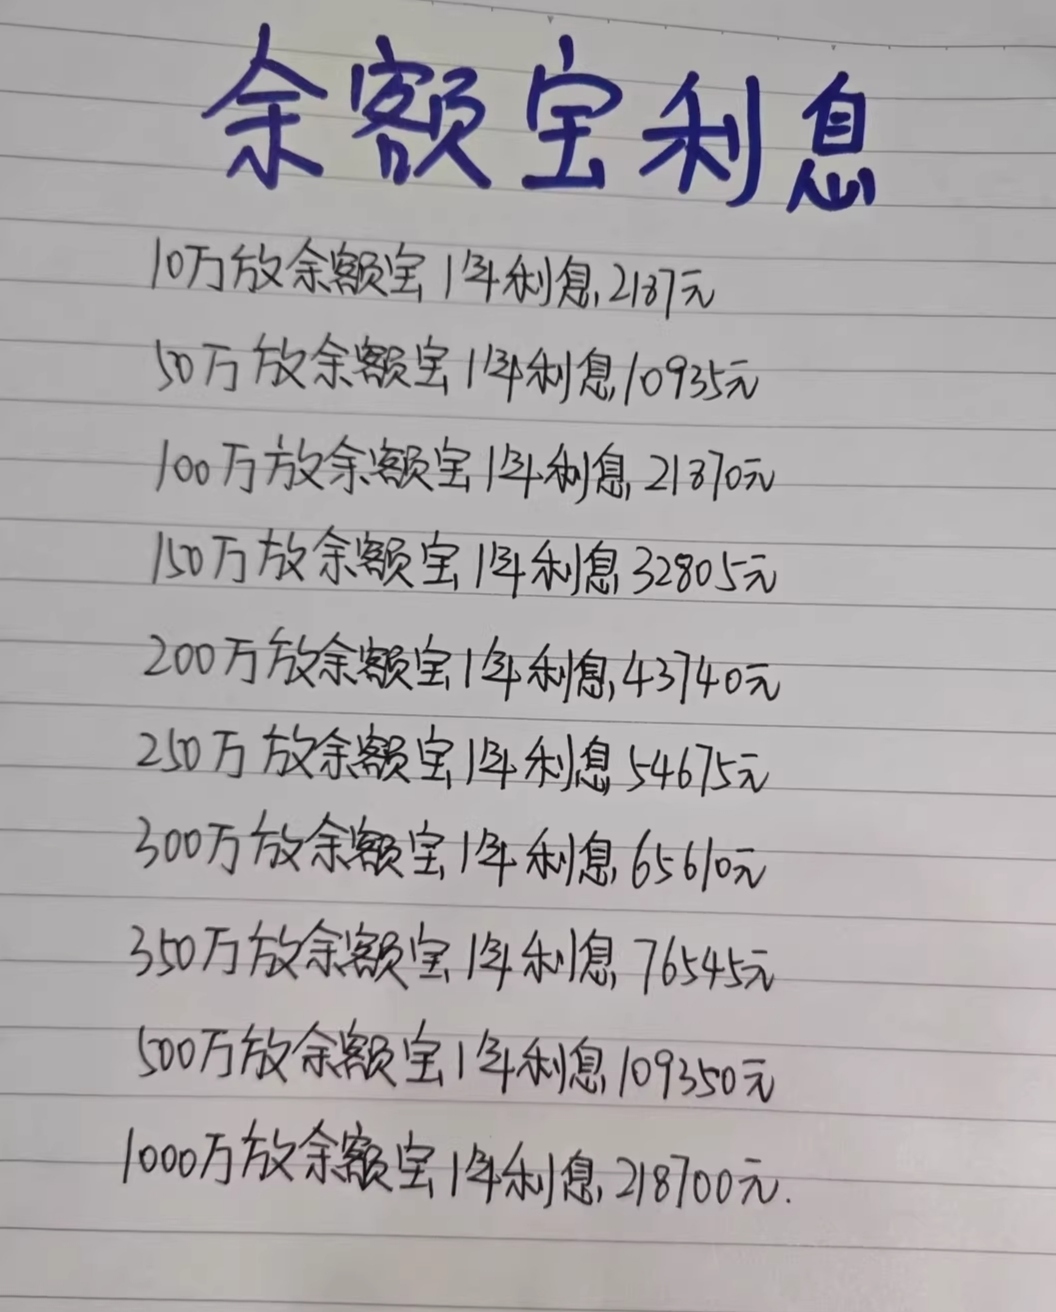 余额宝利息
10万放余额宝1年利息,2187元
50万放余额宝1年利息10935元
100万放余额宝1年利息,21870元
150万放余额宝1年利息32805元
200万放余额宝1年利息,43740元
250万放余额宝1年利息54675元
300万放余额宝1年利息65610元
350万放余额宝1年利息76545元
500万放余额宝1年利息109350元
1000万放余额宝1年利息,218700元.